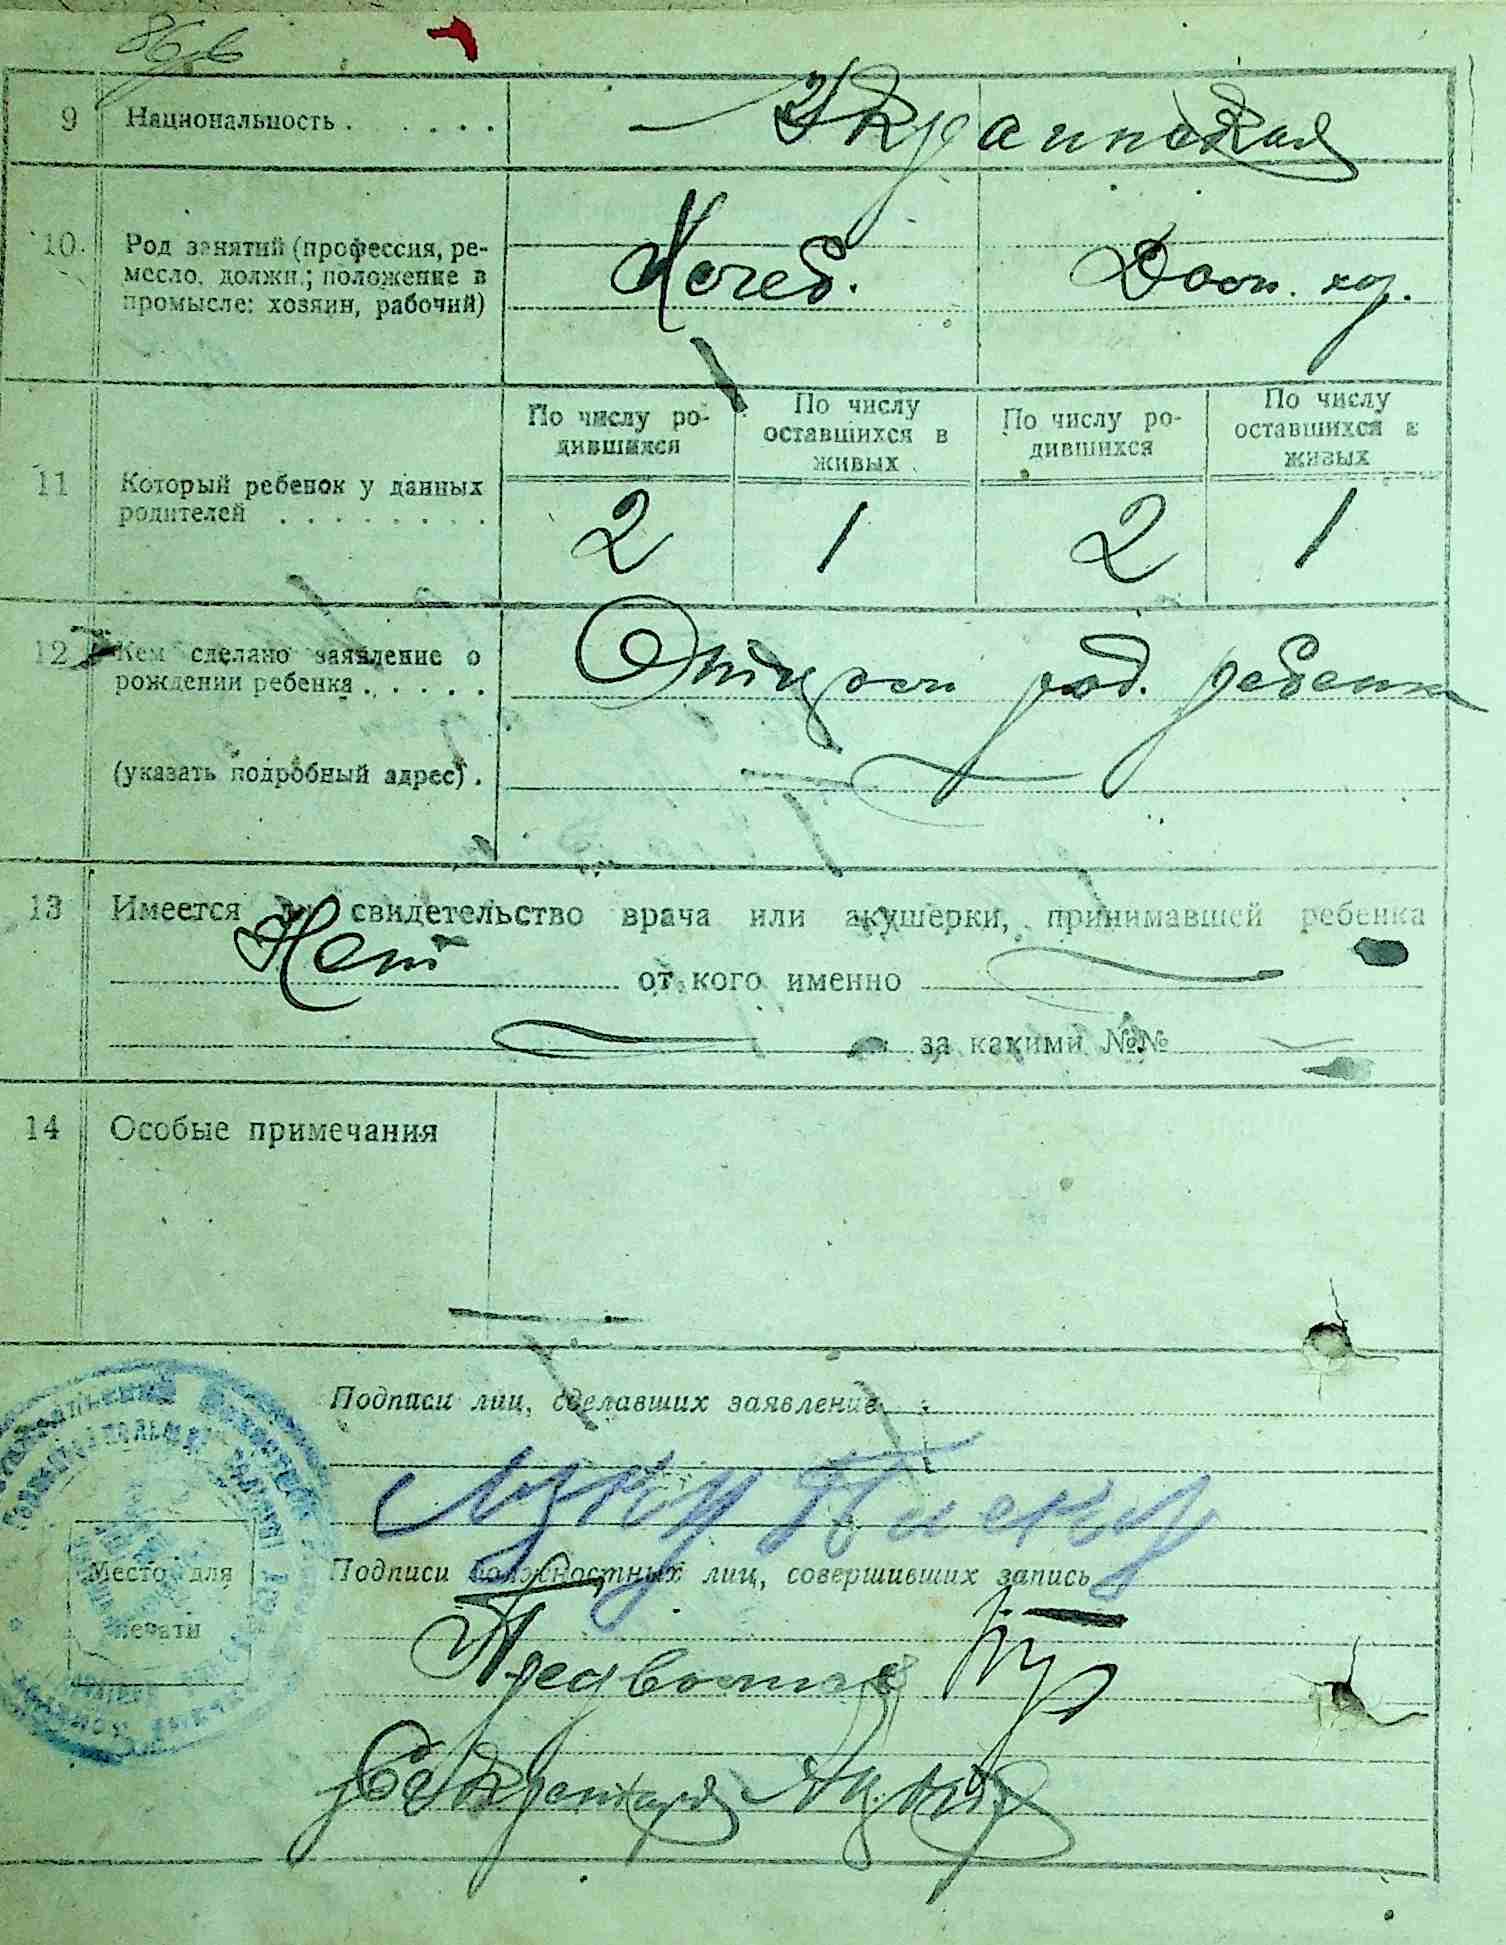 9 Национальность . . . . . . Украинская
10. Род занятий (профессия, ре-
месло, должн.; положение в
промысле: хозяин, рабочий)
Хлеб. Дом. хоз.
По числу ро-
дившихся
По числу
оставшихся в
живых
По числу ро-
дившихся
По числу
оставшихся в
живых
11 Который ребенок у данных
родителей . . . . . . . .
2 1 2 1
12 Кем сделано заявление о
рождении ребенка . . . . . .
Отцом род. ребенка
(указать подробный адрес) .
13 Имеется ли свидетельство врача или акушерки, принимавшей ребенка
Нет от кого именно
за какими №№
14 Особые примечания
Подписи лиц, сделавших заявление
Подписи должностных лиц, совершивших запись
Место для
печати
Секретарь